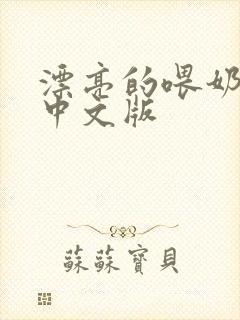 漂亮的喂奶
中文版
蘇蘇寶貝